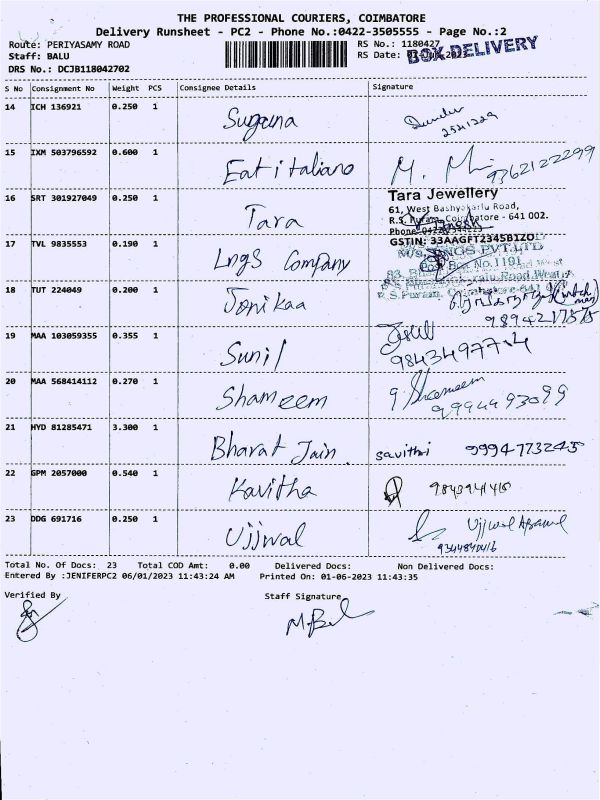 THE PROFESSIONAL COURIERS, COIMBATORE
Delivery Runsheet - PC2 - Phone No.:0422-3505555 - Page No.:2
Route: PERIYASAMY ROAD RS No.: 1180427
Staff: BALU RS Date: BOX DELIVERY
DRS No.: DCJB118042702
S No Consignment No Weight PCS Consignee Details Signature
14 ICH 136921 0.250 1 Suguna
15 IXM 503796592 0.600 1 Eatitaliano 9362122299
16 SRT 301927049 0.250 1 Tara
Tara Jewellery
61, West Bashyakarlu Road,
R.S. Puram, Coimbatore - 641 002.
Phone:
GSTIN: 33AAGFT2345B1ZO
17 TVL 9835553 0.190 1 LngS Company
M/s. LNGS PVT.LTD
Post Box No.1191
18 TUT 224049 0.200 1 Jonikaa
9894217575
19 MAA 103059355 0.355 1 Sunil
20 MAA 568414112 0.270 1 Shameem g. Shameem
9994493099
21 HYD 81285471 3.300 1 Bharat Jain. savithri 9994773245
22 GPM 2057000 0.540 1 Kavitha
23 DDG 691716 0.250 1 Ujjwal Ujjwal Agrawal
9344840416
Total No. Of Docs: 23 Total COD Amt: 0.00 Delivered Docs: Non Delivered Docs:
Entered By :JENIFERPC2 06/01/2023 11:43:24 AM Printed On: 01-06-2023 11:43:35
Verified By Staff Signature